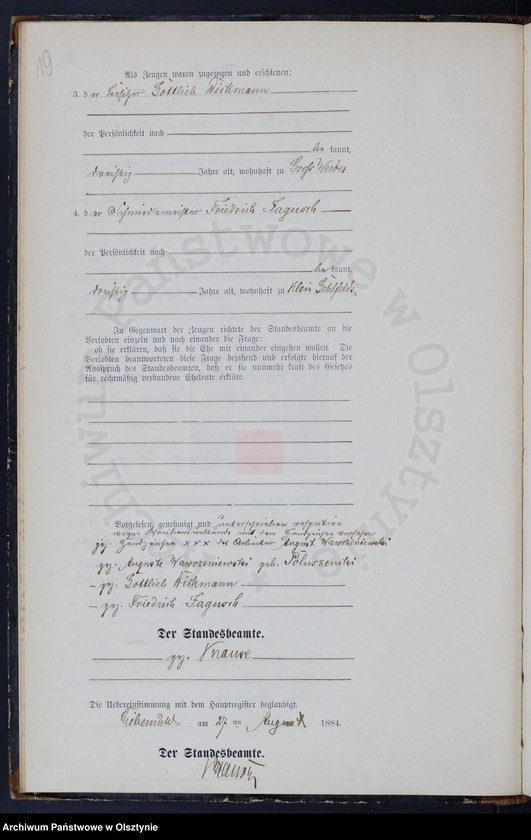 19
Als Zeugen waren zugezogen und erschienen:
3. der Besitzer Gottlieb Dickmann
der Persönlichkeit nach
be kannt,
dreißig Jahre alt, wohnhaft zu Groß Werder
4. der Schmiedemeister Friedrich Fagusch
der Persönlichkeit nach
be kannt,
dreißig Jahre alt, wohnhaft zu Klein
In Gegenwart der Zeugen richtete der Standesbeamte an die
Verlobten einzeln und nach einander die Frage:
ob sie erklären, daß sie die Ehe mit einander eingehen wollen. Die
Verlobten beantworteten diese Frage bejahend und erfolgte hierauf der
Ausspruch des Standesbeamten, daß er sie nunmehr kraft des Gesetzes
für rechtmäßig verbundene Eheleute erkläre.
Vorgelesen, genehmigt und unterschrieben respective
wegen Schreibensunkunde mit den Handzeichen versehen
gez. Handzeichen x x x des Arbeiter August Wawrzenienski
gez. Auguste Wawrzenienski geb.
gez. Gottlieb Dickmann
gez. Friedrich Fagusch
Der Standesbeamte.
gez. Knause
Die Uebereinstimmung mit dem Hauptregister beglaubigt.
Liebemühl am 27 ten August 1884.
Der Standesbeamte.
Knause
Archiwum Państwowe w Olsztynie
Archiwum Państwowe w Olsztynie